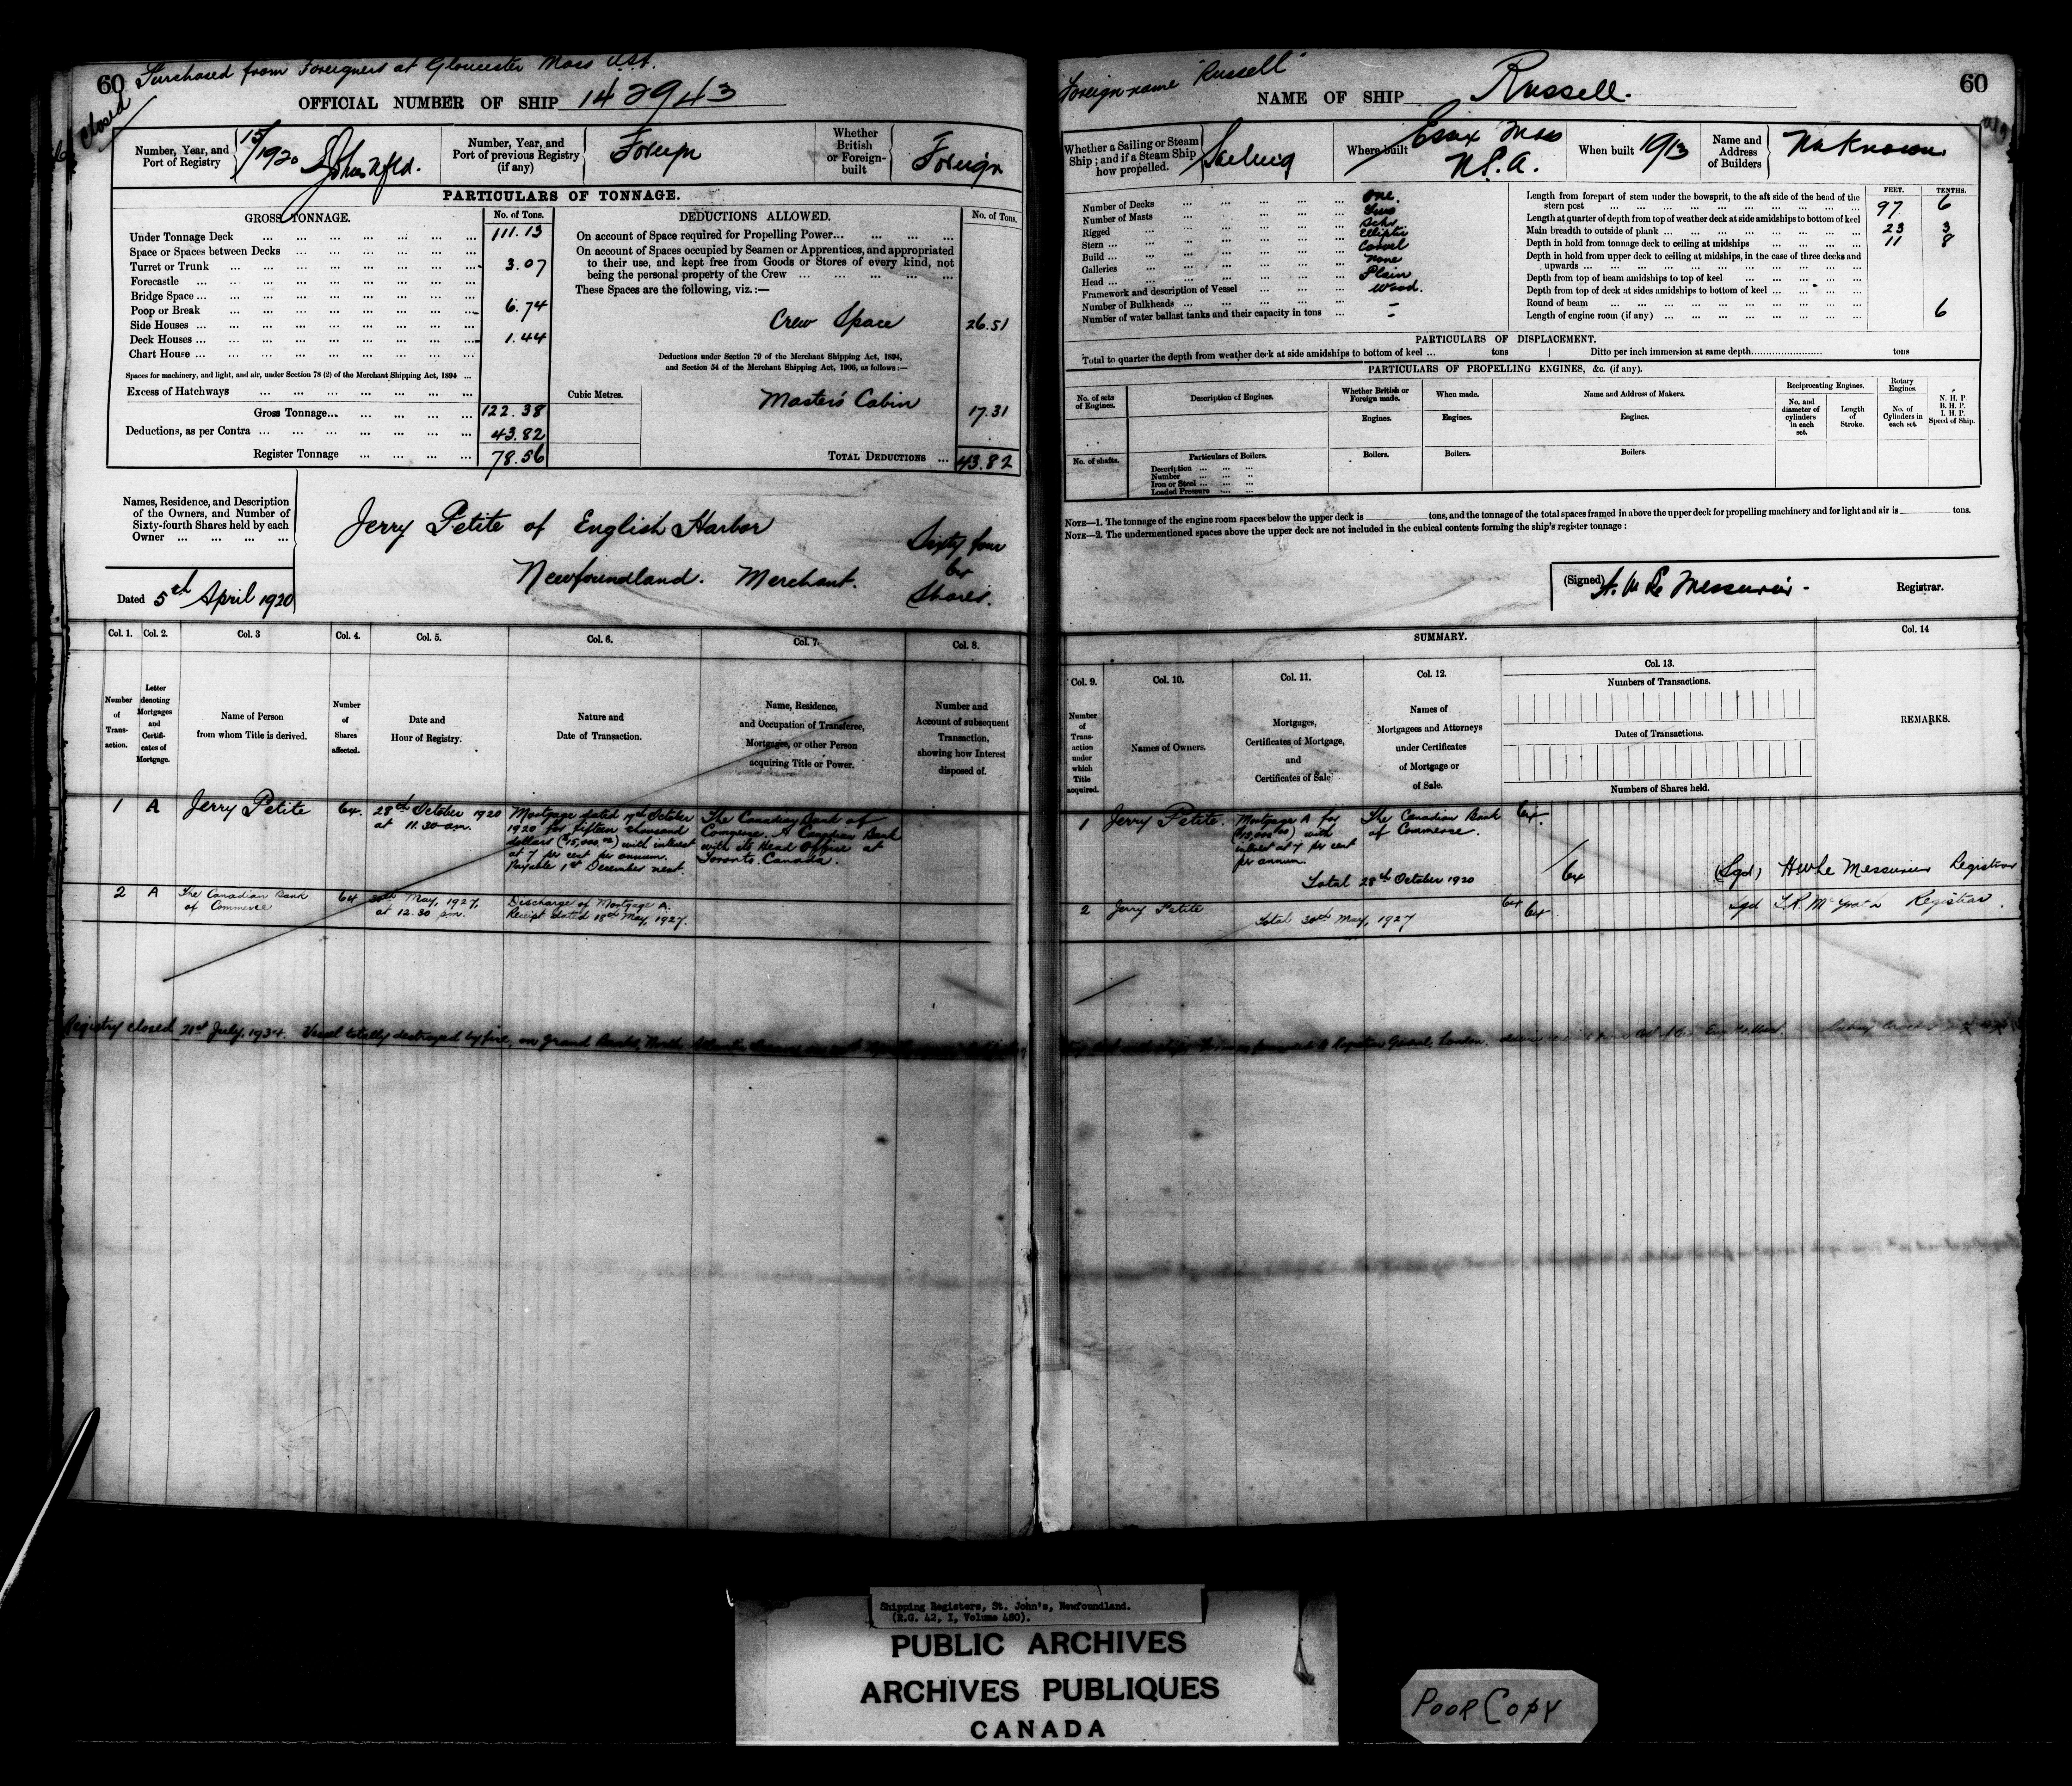 60 Purchased from Foreigners at Gloucester Mass U.S.A.
Closed
OFFICIAL NUMBER OF SHIP 142943
Number, Year, and Port of Registry 15/1920 St Johns Nfld.
Number, Year, and Port of previous Registry (if any) Foreign
Whether British or Foreign-built Foreign
PARTICULARS OF TONNAGE.
GROSS TONNAGE. No. of Tons.
Under Tonnage Deck 111.13
Space or Spaces between Decks
Turret or Trunk 3.07
Forecastle
Bridge Space
Poop or Break 6.74
Side Houses
Deck Houses 1.44
Chart House
Spaces for machinery, and light, and air, under Section 78 (2) of the Merchant Shipping Act, 1894
Excess of Hatchways
Gross Tonnage 122.38
Deductions, as per Contra 43.82
Register Tonnage 78.56
DEDUCTIONS ALLOWED. No. of Tons.
On account of Space required for Propelling Power
On account of Spaces occupied by Seamen or Apprentices, and appropriated
to their use, and kept free from Goods or Stores of every kind, not
being the personal property of the Crew
These Spaces are the following, viz.:—
Crew Space 26.51
Deductions under Section 79 of the Merchant Shipping Act, 1894,
and Section 54 of the Merchant Shipping Act, 1906, as follows:—
Cubic Metres.
Master's Cabin 17.31
TOTAL DEDUCTIONS 43.82
Names, Residence, and Description
of the Owners, and Number of
Sixty-fourth Shares held by each
Owner
Jerry Petite of English Harbor
Newfoundland. Merchant.
Sixty four
64
Shares.
Dated 5th April 1920
Col. 1. Col. 2. Col. 3 Col. 4. Col. 5. Col. 6. Col. 7. Col. 8.
Number of Transaction.
Letter denoting Mortgages and Certificates of Mortgage.
Name of Person from whom Title is derived.
Number of Shares affected.
Date and Hour of Registry.
Nature and Date of Transaction.
Name, Residence, and Occupation of Transferee, Mortgagee, or other Person acquiring Title or Power.
Number and Account of subsequent Transaction, showing how Interest disposed of.
1 A Jerry Petite 64. 28th October 1920 at 11.30 am.
Mortgage dated 19th October
1920 for fifteen thousand
dollars ($15,000.00) with interest
at 7 per cent per annum.
Payable 1st December next.
The Canadian Bank of
Commerce. A Canadian Bank
with its Head Office at
Toronto. Canada.
2 A The Canadian Bank of Commerce 64 30th May, 1927, at 12.30 pm.
Discharge of Mortgage A.
Receipt dated 18th May, 1927.
Registry closed 21st July, 1934. Vessel totally destroyed by fire, on Grand Banks, North Atlantic
Foreign name "Russell"
NAME OF SHIP Russell.
60
Whether a Sailing or Steam Ship; and if a Steam Ship how propelled. Sailing
Where built Essex Mass U.S.A.
When built 1913
Name and Address of Builders Unknown
Number of Decks One.
Number of Masts Two
Rigged Schr
Stern Elliptic
Build Carvel
Galleries None
Head Plain
Framework and description of Vessel Wood.
Number of Bulkheads –
Number of water ballast tanks and their capacity in tons –
FEET. TENTHS.
Length from forepart of stem under the bowsprit, to the aft side of the head of the
stern post 97 6
Length at quarter of depth from top of weather deck at side amidships to bottom of keel
Main breadth to outside of plank 23 3
Depth in hold from tonnage deck to ceiling at midships 11 8
Depth in hold from upper deck to ceiling at midships, in the case of three decks and
upwards
Depth from top of beam amidships to top of keel
Depth from top of deck at sides amidships to bottom of keel
Round of beam 6
Length of engine room (if any)
PARTICULARS OF DISPLACEMENT.
Total to quarter the depth from weather deck at side amidships to bottom of keel tons Ditto per inch immersion at same depth tons
PARTICULARS OF PROPELLING ENGINES, &c. (if any).
No. of sets of Engines.
Description of Engines.
Whether British or Foreign made.
When made.
Name and Address of Makers.
Reciprocating Engines.
Rotary Engines.
N. H. P.
B. H. P.
I. H. P.
Speed of Ship.
Engines. Engines. Engines.
No. and diameter of cylinders in each set.
Length of Stroke.
No. of Cylinders in each set.
No. of shafts.
Particulars of Boilers.
Description
Number
Iron or Steel
Loaded Pressure
Boilers. Boilers. Boilers.
NOTE—1. The tonnage of the engine room spaces below the upper deck is tons, and the tonnage of the total spaces framed in above the upper deck for propelling machinery and for light and air is tons.
NOTE—2. The undermentioned spaces above the upper deck are not included in the cubical contents forming the ship's register tonnage:
(Signed) H. W. Le Messurier. Registrar.
SUMMARY.
Col. 9. Col. 10. Col. 11. Col. 12. Col. 13. Col. 14
Number of Transaction under which Title acquired.
Names of Owners.
Mortgages, Certificates of Mortgage, and Certificates of Sale
Names of Mortgagees and Attorneys under Certificates of Mortgage or of Sale.
Numbers of Transactions.
Dates of Transactions.
Numbers of Shares held.
REMARKS.
1 Jerry Petite.
Mortgage A for
($15,000.00) with
interest at 7 per cent
per annum.
The Canadian Bank
of Commerce.
64.
Total 28th October 1920 64
(Sgd) HW Le Messurier Registrar
2 Jerry Petite 64
Total 30th May, 1927 64
Sgd Registrar.
Registrar General, London.
Shipping Registers, St. John's, Newfoundland.
(R.G. 42, I, Volume 480).
PUBLIC ARCHIVES
ARCHIVES PUBLIQUES
CANADA
POOR COPY